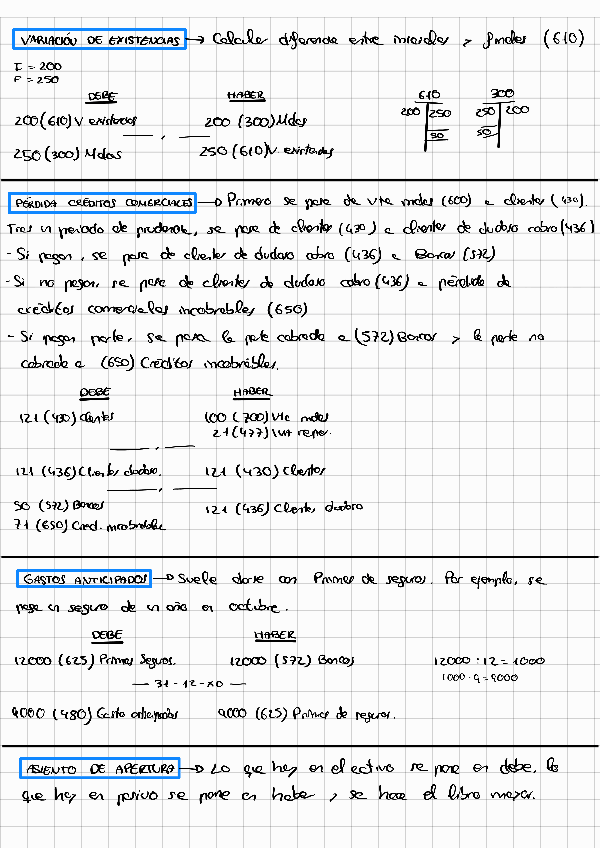 VARIACIÓN DE EXISTENCIAS → Calcular diferencia entre iniciales y finales (610)
I = 200
F = 250
DEBE HABER 610 300
200 250 250 200
200 (610) V existencias 200 (300) Mdas
50 50
250 (300) Mdas 250 (610) V. existencias
PÉRDIDA CRÉDITOS COMERCIALES → Primero se pasa de vta mdas (600) a clientes (430).
Tras un periodo de prudencia, se pasa de clientes (430) a clientes de dudoso cobro (436)
- Si pagan, se pasa de clientes de dudoso cobro (436) a Bancos (572)
- Si no pagan, se pasa de clientes de dudoso cobro (436) a pérdida de
créditos comerciales incobrables (650)
- Si pagan parte, se pasa la parte cobrada a (572) Bancos y la parte no
cobrada a (650) Créditos incobrables.
DEBE HABER
121 (430) Clientes 100 (700) Vta mdas
21 (477) IVA reper.
121 (436) Clientes dudoso. 121 (430) Clientes
50 (572) Bancos 121 (436) Clientes dudoso
71 (650) Cred. incobrables
GASTOS ANTICIPADOS → Suele darse con Primas de seguros. Por ejemplo, se
paga un seguro de un año en octubre.
DEBE HABER
12000 (625) Primas Seguros. 12000 (572) Bancos 12000 : 12 = 1000
1000 · 9 = 9000
— 31 - 12 - x0 —
9000 (480) Gastos anticipados 9000 (625) Primas de seguros.
ASIENTO DE APERTURA → Lo que hay en el activo se pone en debe, lo
que hay en pasivo se pone en haber y se hace el libro mayor.